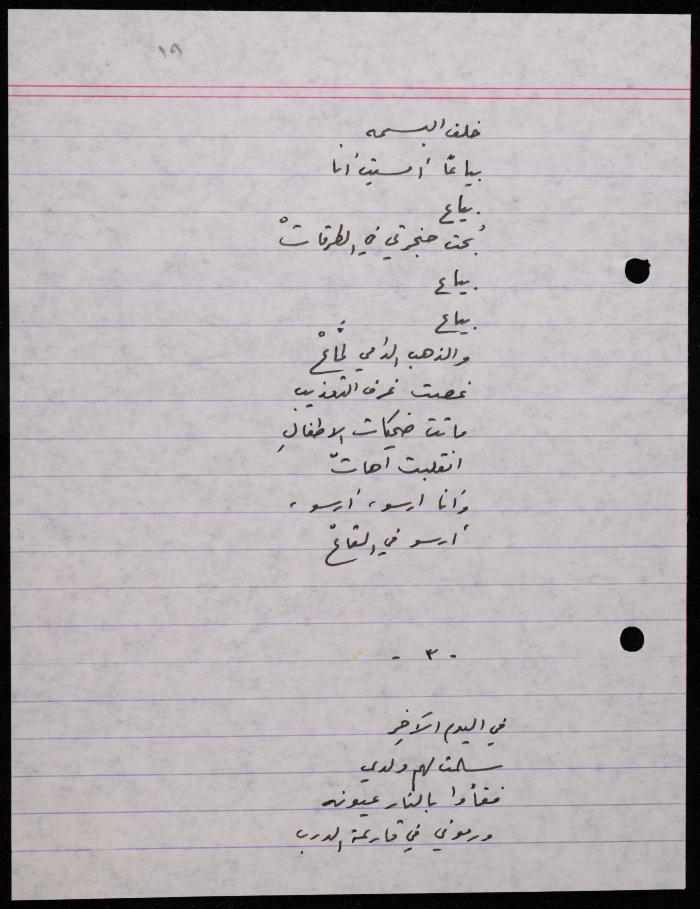 ١٩
خلف البسمه
بياعًا أمسيتُ أنا
بياع
بُحت حنجرتي في الطرقاتْ
بياع
بياع
والذهب الدامي لمّاعْ
غصت غرف التعذيب
ماتت ضحكات الاطفالِ
انقلبت آهاتْ
وأنا أرسو، أرسو،
أرسو في القاعْ
- ٣ -
في اليوم الآخِر
سلمت لهم ولدي
فقأوا بالنار عيونه
ورموني في قارعة الدرب